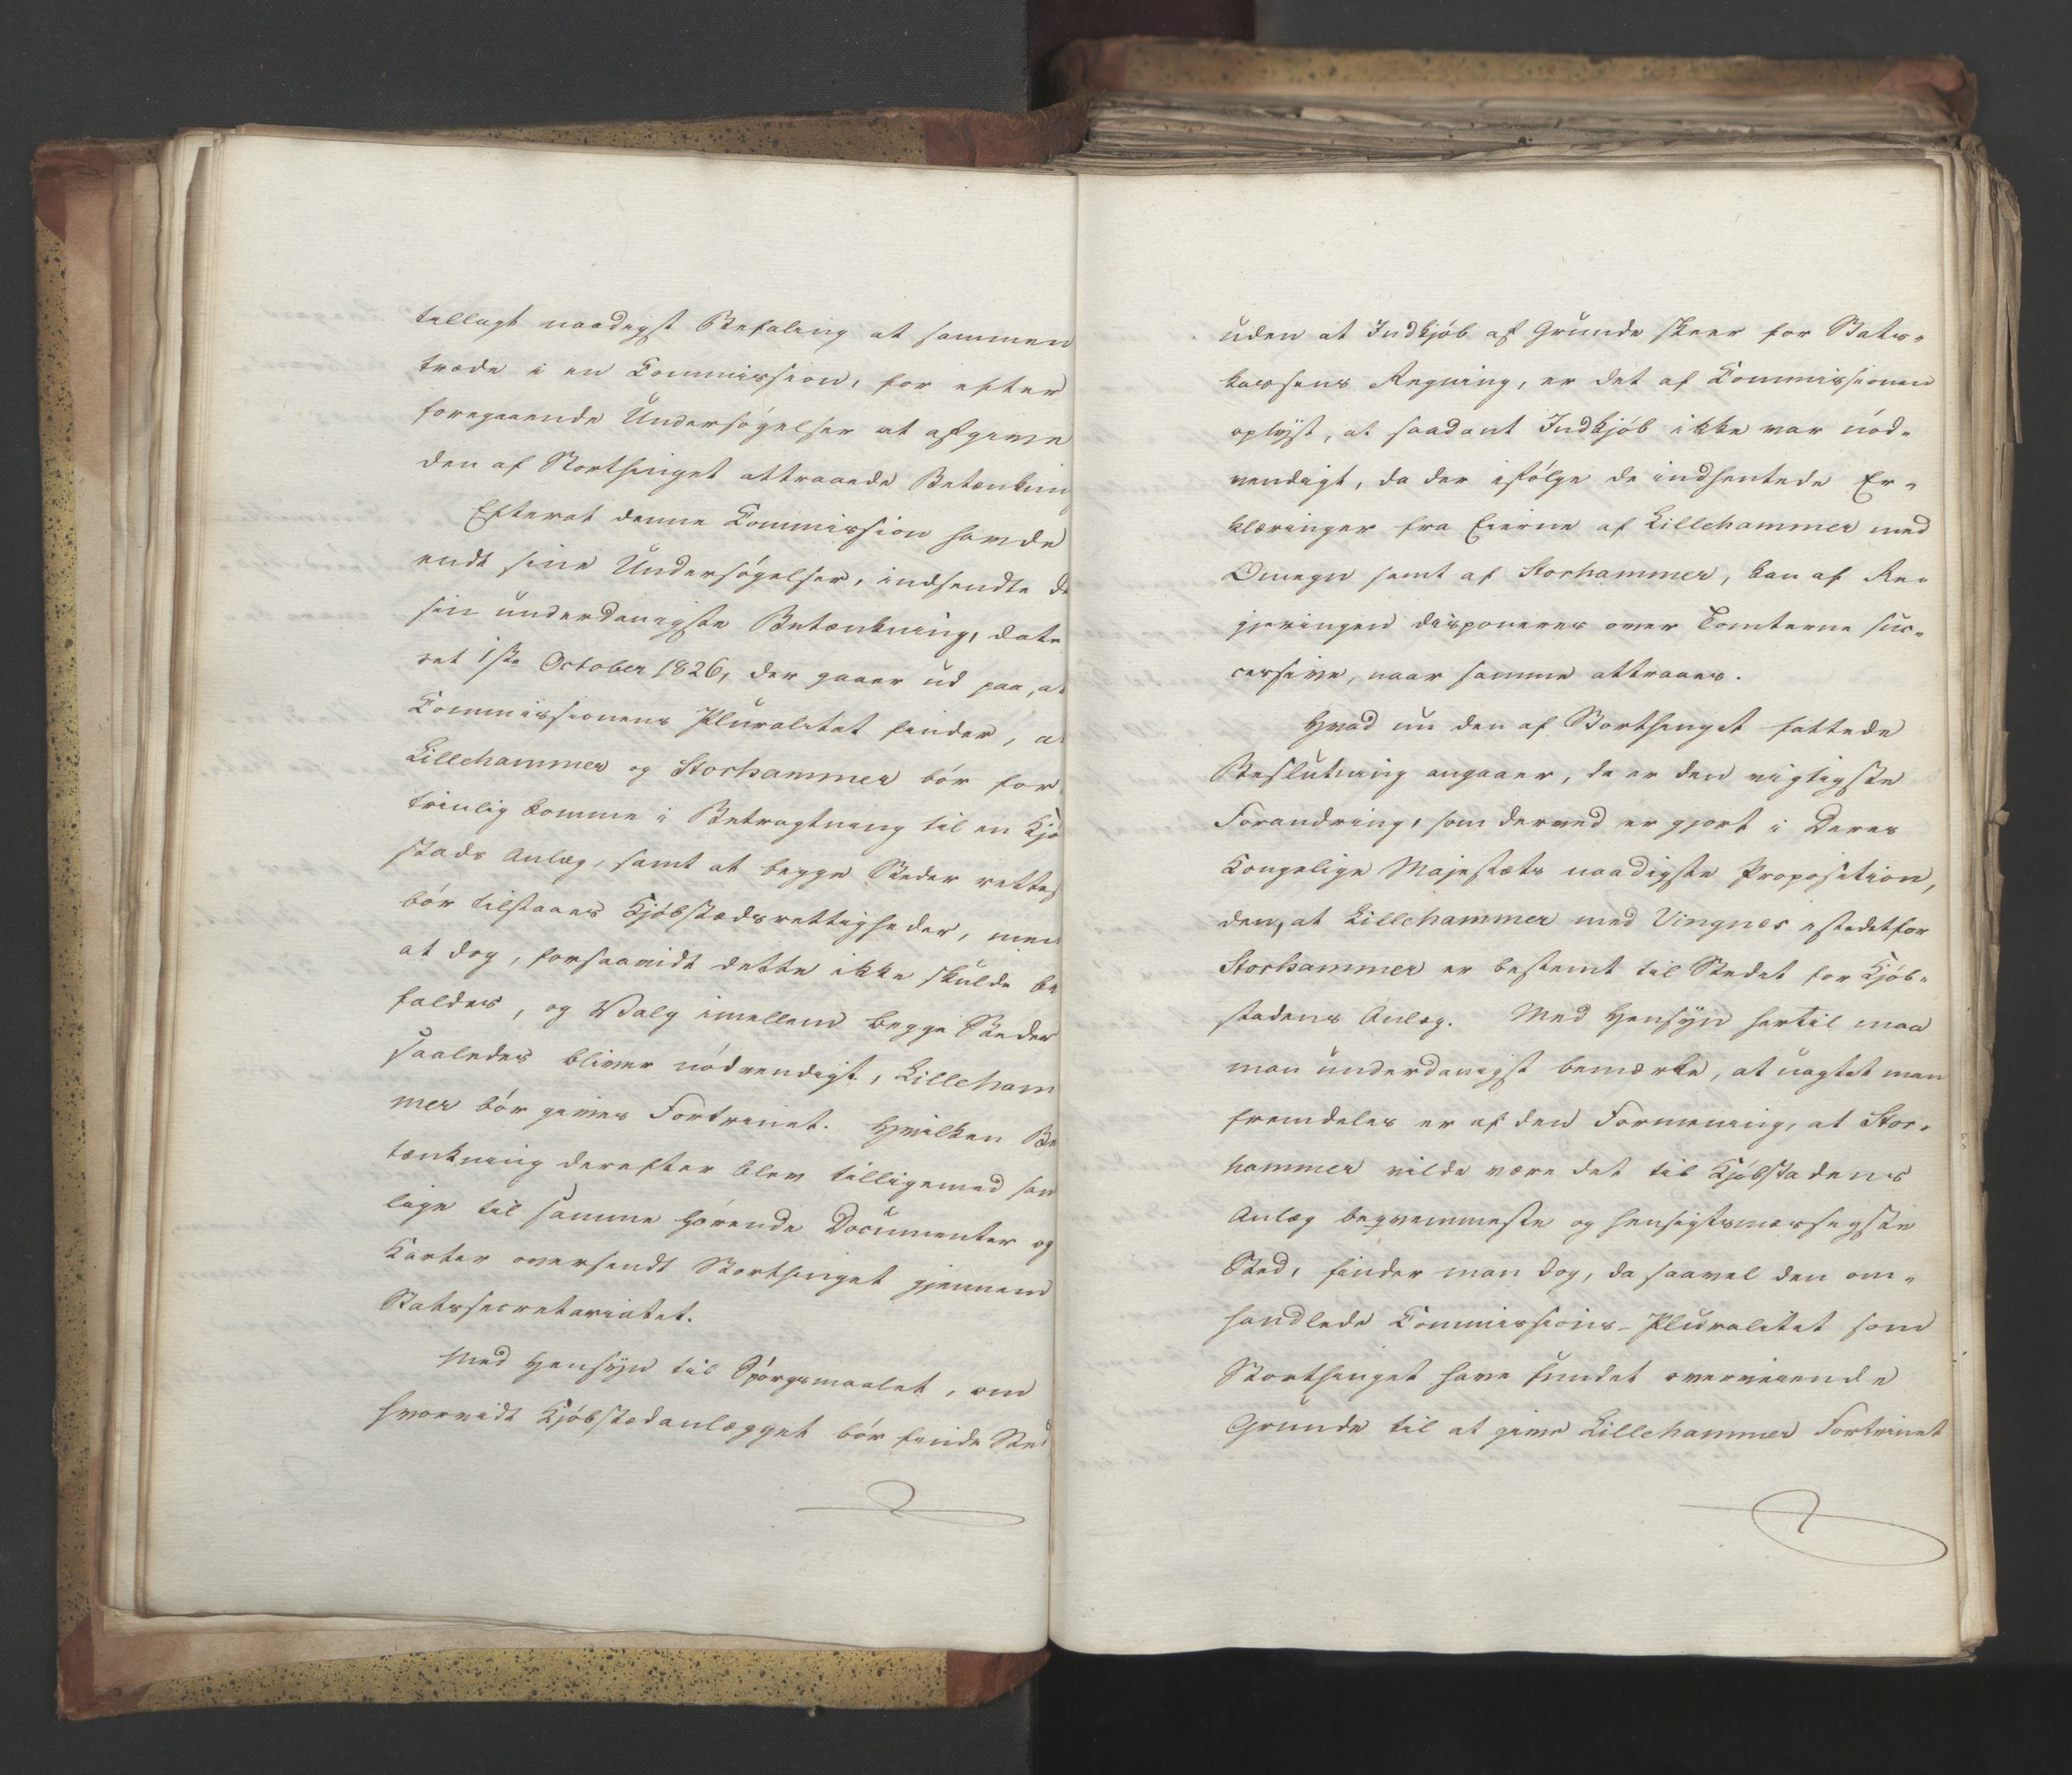 tillagt naadigst Befaling at sammen
træde i en Commission, for efter
foregaaende Undersøgelser at afgive
den af Storthinget attraaede Betænknin
Efterat denne Commission havde
endt sine Undersøgelser, indsendte d
sin underdanigste Betænkning, date
ret 1ste October 1826, der gaaer ud paa, at
Commissionens Pluralitet finder, a
Lillehammer og Storhammer bør for
trinlig komme i Betragtning til en Kjø
stads Anlæg, samt at begge Steder rettes
bør tilstaaes Kjøbstædsrettigheder, men
at dog, forsaavidt dette ikke skulde bi
faldes, og Valg imellem begge Steder
saaledes bliver nødvendigt, Lilleham
mer bør gives Fortrinet. Hvilken Be
tænkning derefter blev tilligemed sam
lige til samme hørende Documenter og
Karter oversendt Storthinget gjennem
Statssecretariatet.
Med Hensyn til Spørgsmaalet, om
hvorvidt Kjøbstadanlægget bør finde Sted
uden at Indkjøb af Grunde skeer for Stats-
kassens Regning, er det af Commissionen
oplyst, at saadant Indkjøb ikke var nød-
vendigt, da der ifølge de indhentede Er-
klæringer fra Eierne af Lillehammer med
Omegn samt af Storhammer, kan af Re-
gjeringen disponeres over Tomterne suc-
cessive, naar samme attraaes.
Hvad nu den af Storthinget fattede
Beslutning angaaer, da er den vigtigste
Forandring, som derved er gjort i Deres
Kongelige Majestæts naadigste Proposition,
den, at Lillehammer med Vingnes istedetfor
Storhammer er bestemt til Stedet for Kjøb-
stadens Anlæg. Med Hensyn hertil maa
man underdanigst bemærke, at uagtet man
fremdeles er af den Formening, at Stor-
hammer vilde være det til Kjøbstadens
Anlæg beqvemmeste og hensigtsmæssigste
Sted, finder man dog, da saavel den om-
handlede Commissions-Pluralitet som
Storthinget have fundet overveiende
Grunde til at give Lillehammer Fortrinet